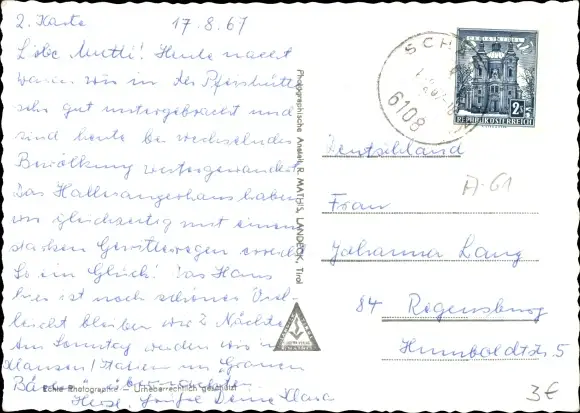 2. Karte 17.8.67
Liebe Mutti! Heute nacht
waren wir in der Pfeishütte
sehr gut untergebracht und
sind heute bei wechselnder
Bewölkung weitergewandert.
Das Hallerangerhaus haben
wir gleichzeitig mit einem
starken Gewitterregen erreicht.
So ein Glück! Das Haus
hier ist noch schöner. Viel-
leicht bleiben wir 2 Nächte.
Am Sonntag werden wir in
im Grauen
Bären übernachten.
Herzl. Grüße Deine Klara
Photographische Anstalt R. MATHIS, LANDECK, Tirol
Echte Photographie — Urheberrechtlich geschützt
CHRISTKINDL
2S
REPUBLIK ÖSTERREICH
SCH
6108
Deutschland
A-61
Frau
Johanna Lang
84 Regensburg
Humboldtstr. 5
3€